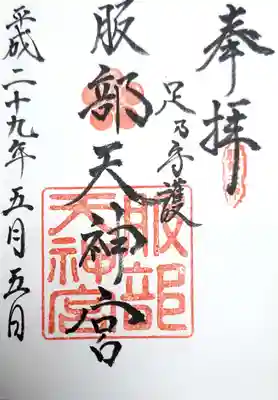 奉拝
足乃守護
服部天神宮
服部
天神宮
平成二十九年五月五日